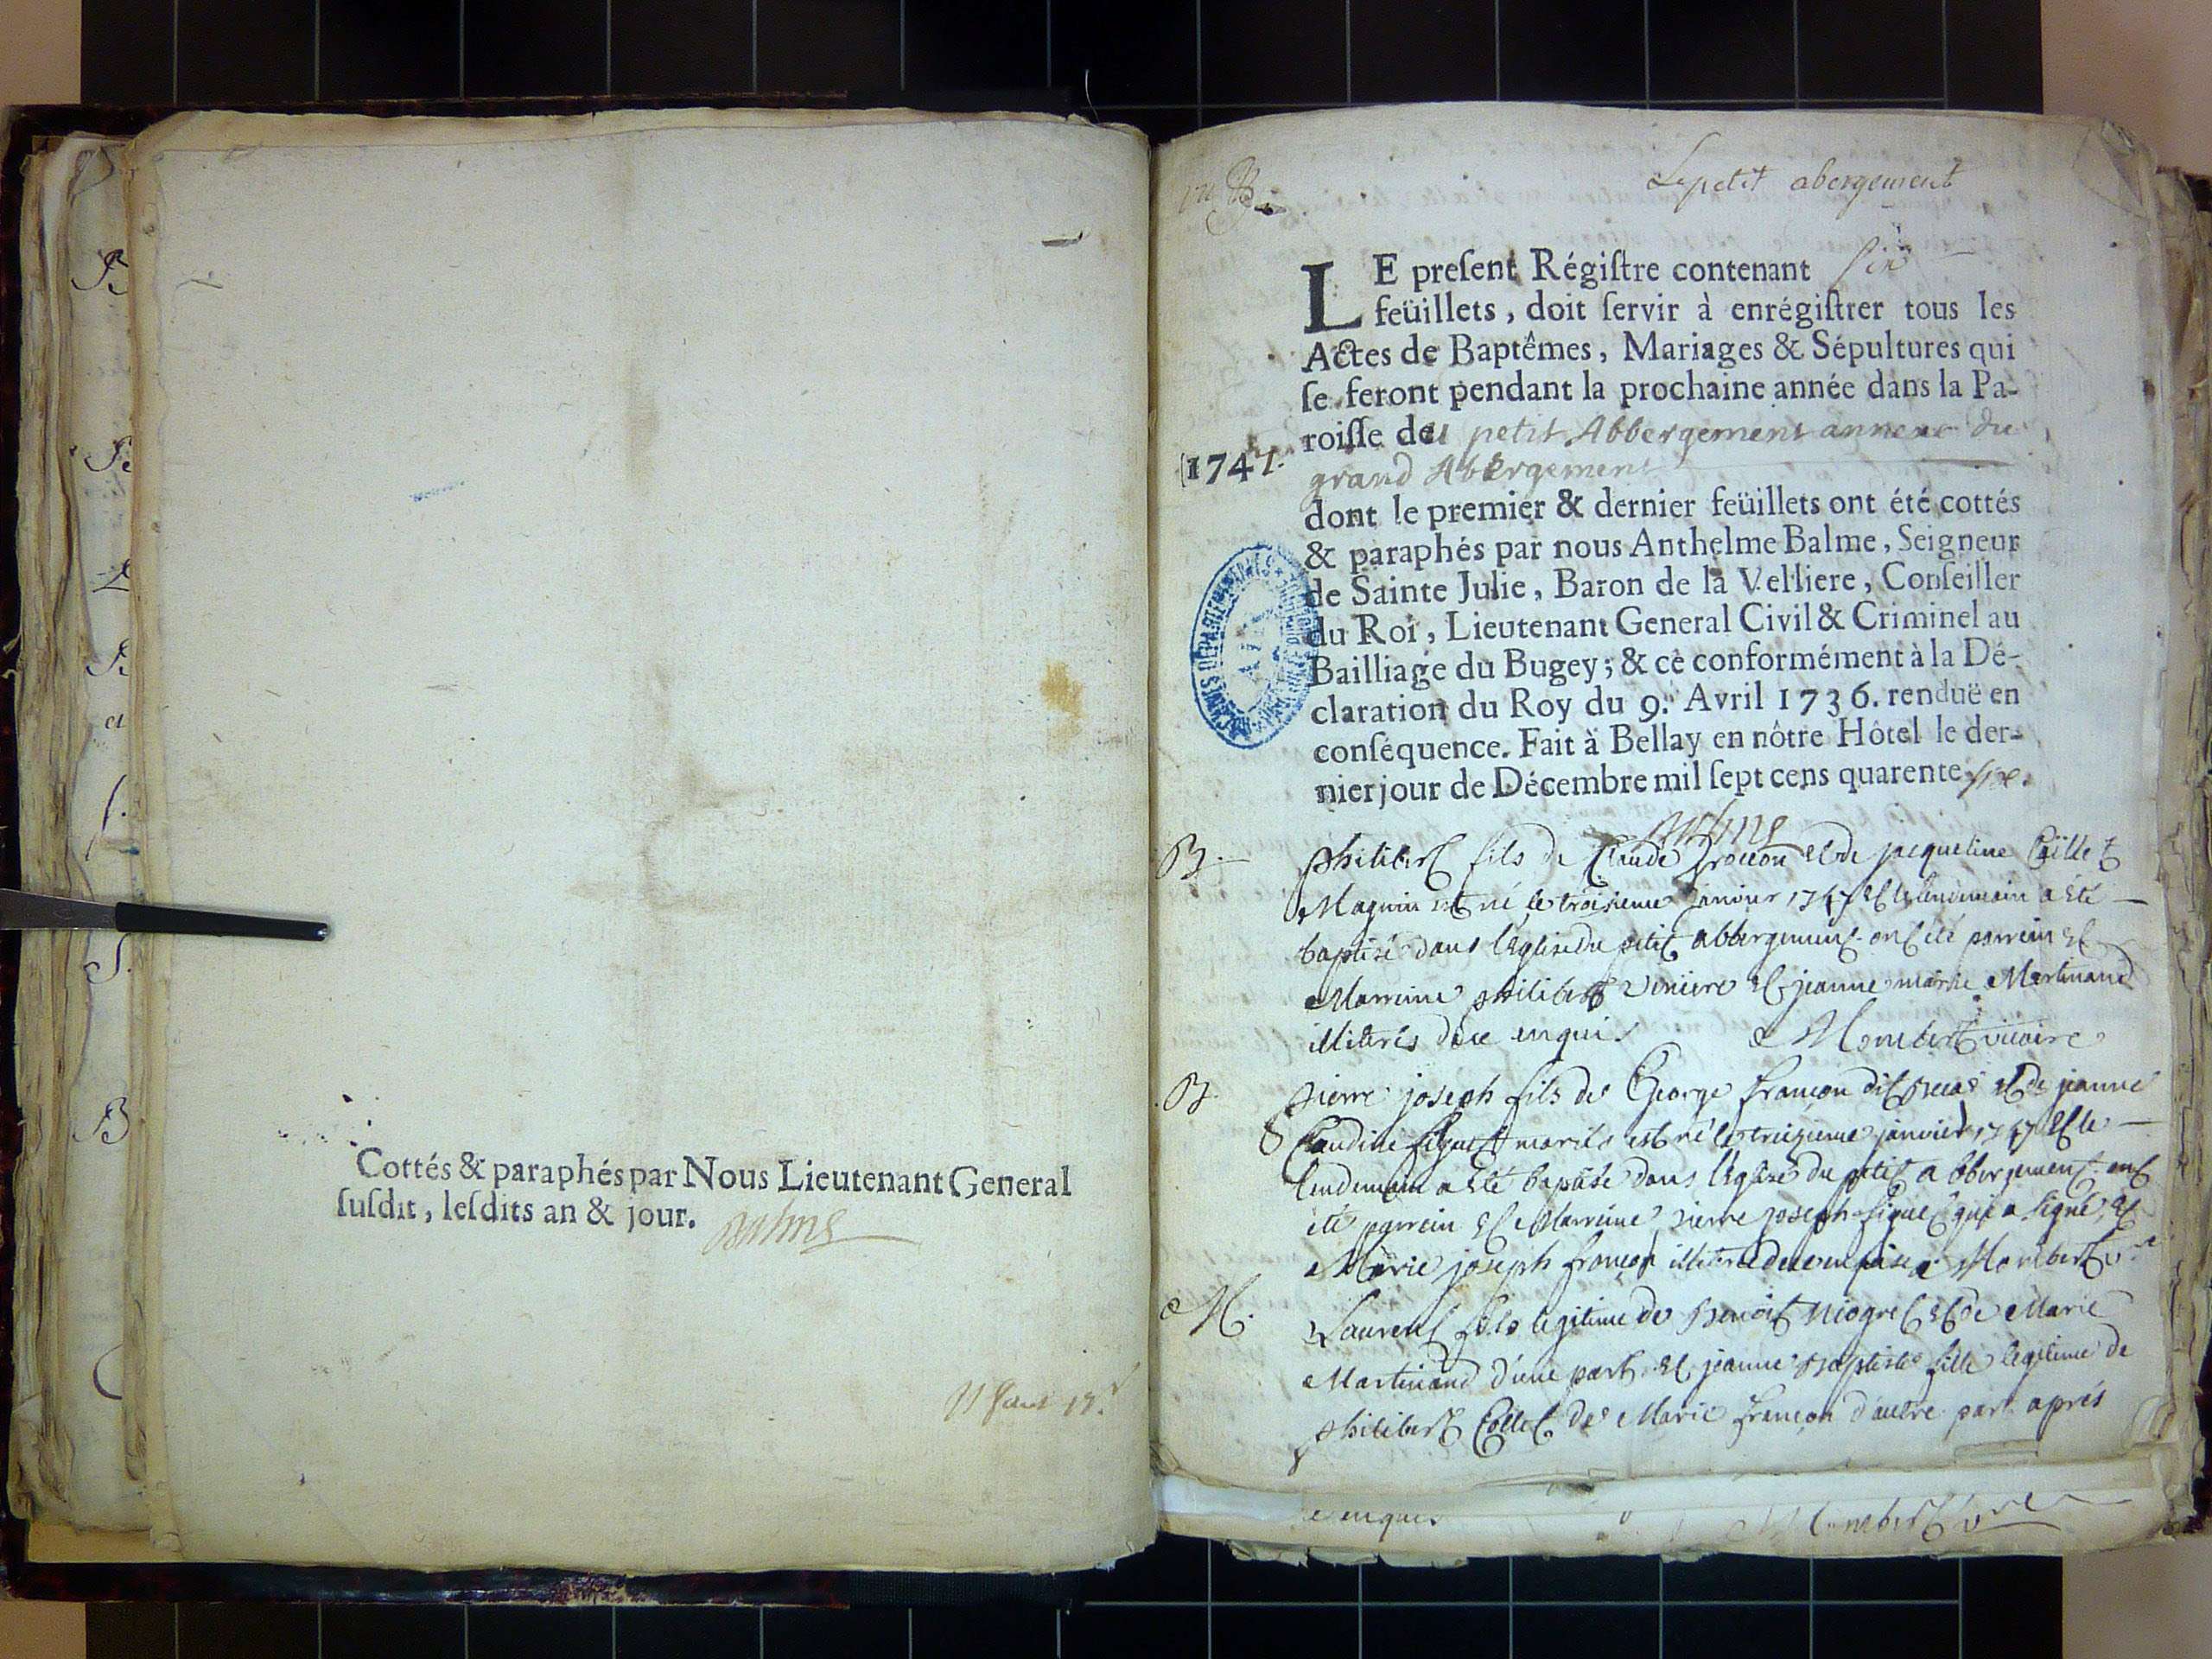 Cottés & paraphés par Nous Lieutenant General
ſuſdit, leſdits an & jour.
Balme
Le petit abergement
LE preſent Régiſtre contenant six
feüillets, doit ſervir à enrégiſtrer tous les
Actes de Baptêmes, Mariages & Sépultures qui
ſe feront pendant la prochaine année dans la Pa-
roiſſe deu petit Abbergement annexe du
1747.
grand Abergement
dont le premier & dernier feüillets ont été cottés
& paraphés par nous Anthelme Balme, Seigneur
de Sainte Julie, Baron de la Velliere, Conſeiller
du Roi, Lieutenant General Civil & Criminel au
Bailliage du Bugey; & ce conformément à la Dé-
claration du Roy du 9. Avril 1736. renduë en
conſéquence. Fait à Bellay en nôtre Hôtel le der-
nier jour de Décembre mil ſept cens quarente six.
Balme
B. philibert fils de Claude et de jacqueline
Maguin est né le troisieme janvier 1747 et le lendemain a été
baptisé dans l'Eglise du petit abbergement ont été parrein et
Marreine philibert et jeanne marie Martinand
illiterés de ce enquis Montbert vicaire
B. pierre joseph fils de George françon dit et de jeanne
Claudine mariés est né le treizieme janvier 1747 et le
lendemain a été baptisé dans l'Eglise du petit abbergement ont
été parrein et Marreine pierre joseph qui a signé et
Marie joseph françon illiterée de ce enquise Montbert vre
M. Laurent fils legitime de Benoit Niogret et de Marie
Martinand d'une part et jeanne Baptiste fille legitime de
philibert Collet de Marie françon d'autre part aprés
enquis Montbert vre